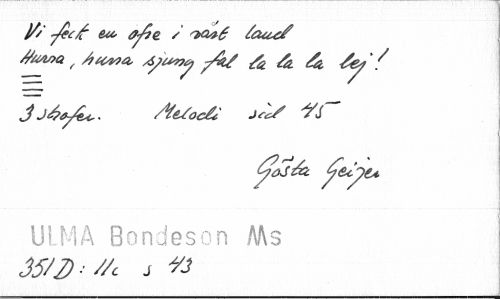 Vi feck en ofre i vårt land
Hurra, hurra sjung fal la la la lej!
3 strofer. Melodi sid 45
Gösta Geijer
ULMA Bondeson Ms
351 D: 11c s 43